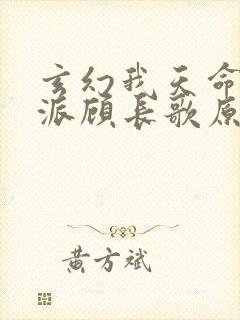 玄幻我天命
派顾长歌原
黄方斌